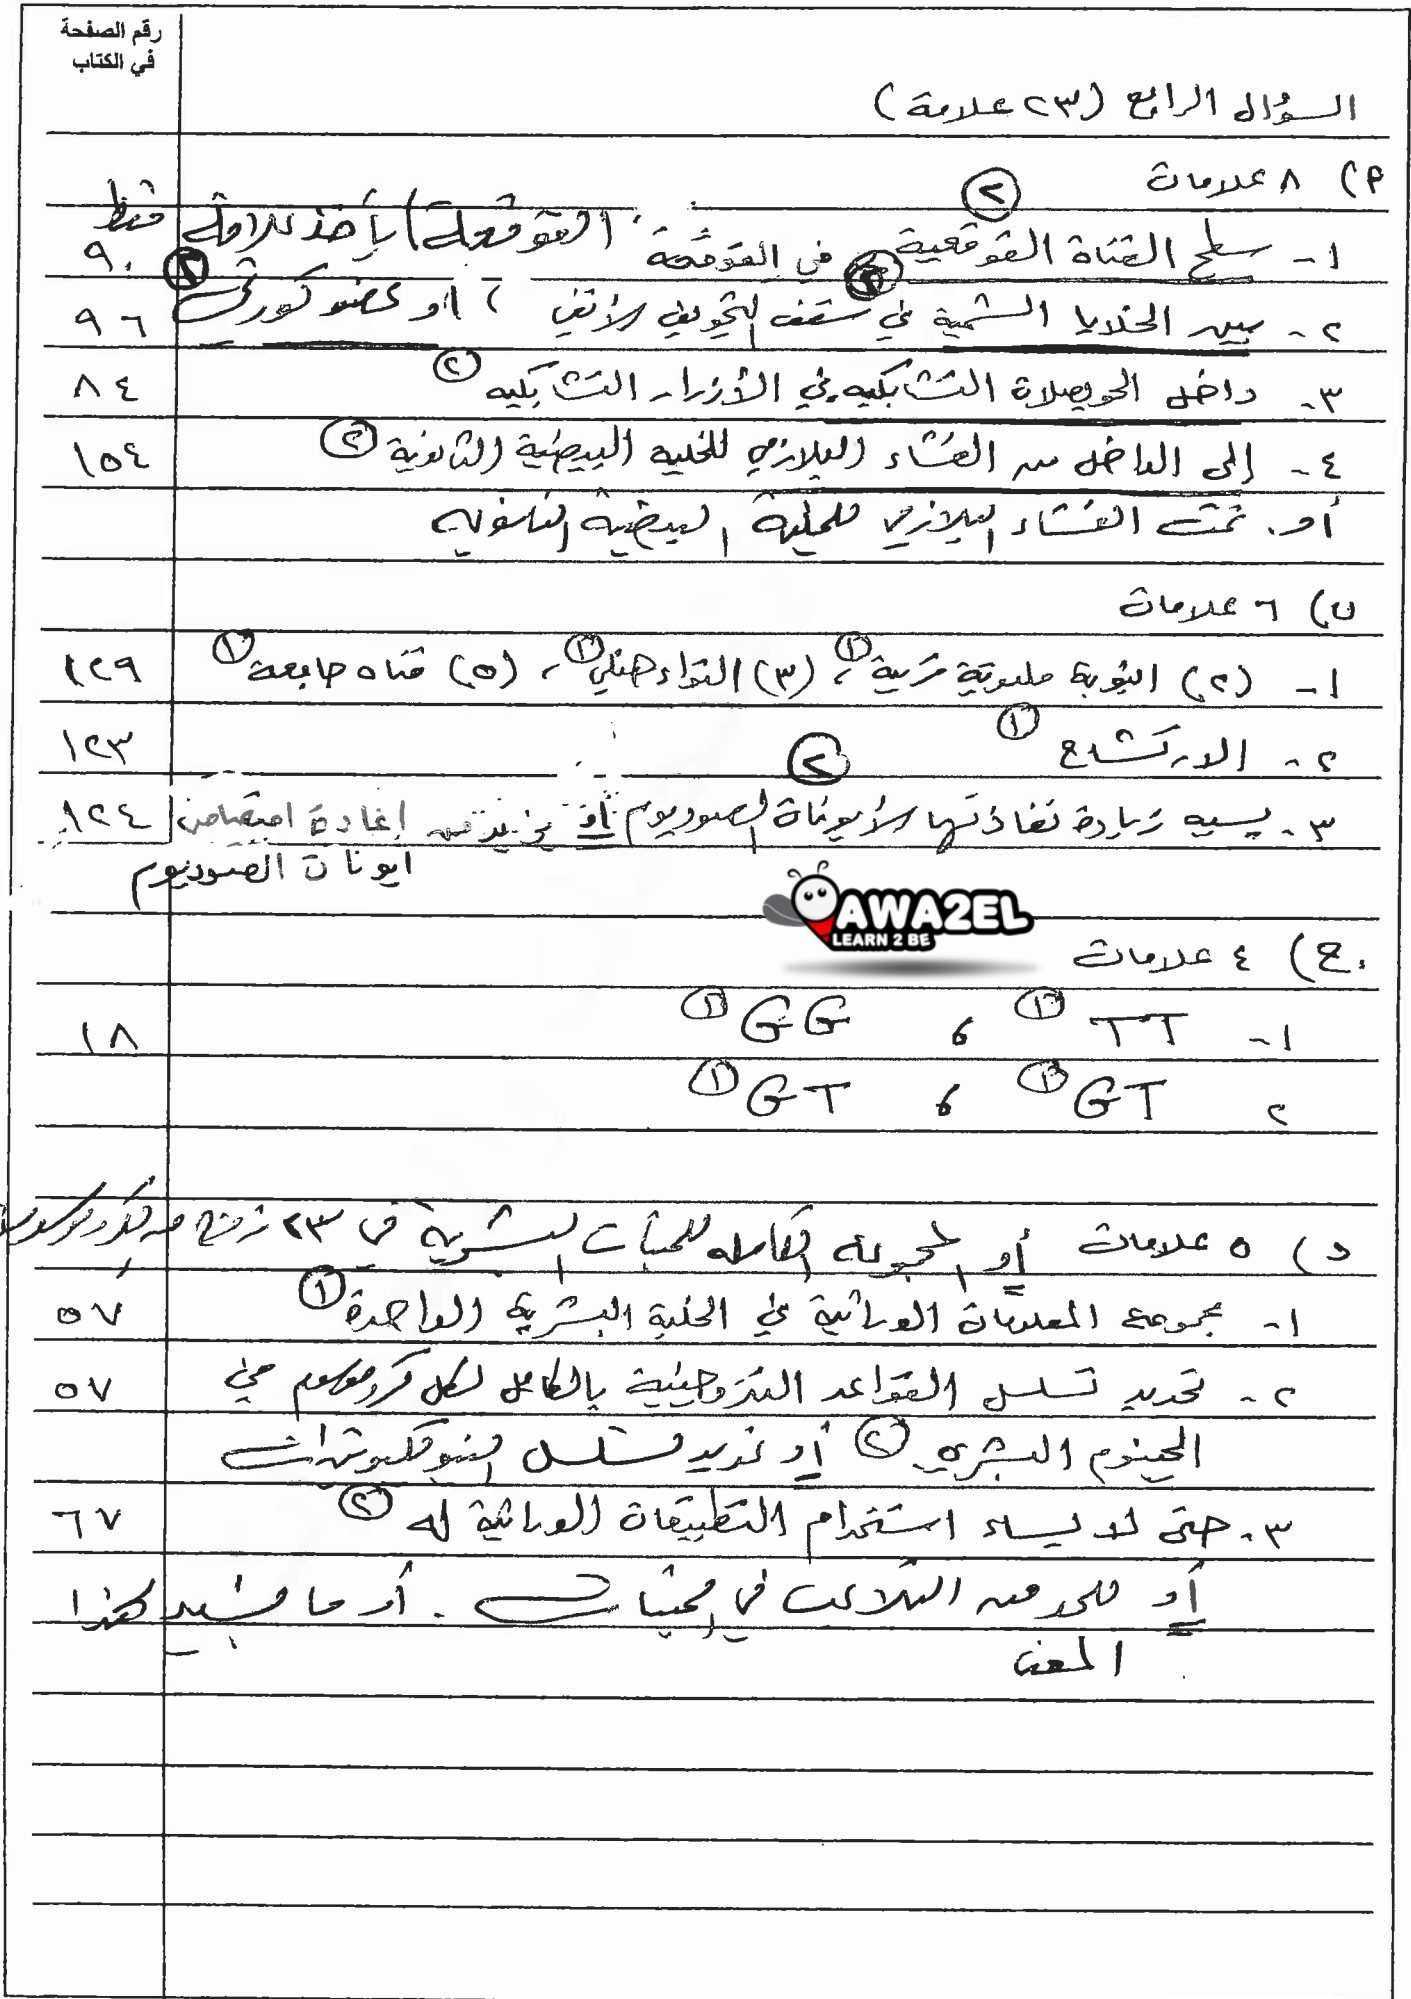 رقم الصفحة
في الكتاب
السؤال الرابع (٢٣ علامة)
أ) ٨ علامات
١- سطح القناة القوقعية في القوقعة ٢ (القوقعة) يأخذ علامة فقط ٩٠
٢- بين الخلايا الشمية في سقف التجويف الأنفي ٢، أو عضو كورتي ٢ ٩٦
٣- داخل الحويصلات التشابكية في الأزرار التشابكية ٢ ٨٤
٤- إلى الداخل من الغشاء البلازمي للخلية البيضية الثانوية ٢ ١٥٤
أو. تحت الغشاء البلازمي للخلية البيضية الثانوية
ب) ٦ علامات
١- (٢) انبوبة ملتوية قريبة ١، (٣) التواء هنلي ١، (٥) قناة جامعة ١ ١٢٩
٢- الارتشاح ١ ١٢٣
٣- بسبب زيادة نفاذيتها لأيونات الصوديوم ٢ أو يزيد من إعادة امتصاص ١٢٤
ايونات الصوديوم
AWA2EL
LEARN 2 BE
ج) ٤ علامات
١- TT ١ ، GG ١ ١٨
٢ GT ١ ، GT ١
د) ٥ علامات أو المجموعة الكاملة للجينات البشرية في ٢٣ زوج من الكروموسومات
١- مجموعة المعلومات الوراثية في الخلية البشرية الواحدة ١ ٥٧
٢- تحديد تسلسل القواعد النيتروجينية بالكامل لكل كروموسوم في ٥٧
الجينوم البشري ٢ أو تحديد تسلسل النيوكليوتيدات
٣- حتى لا يساء استخدام التطبيقات الوراثية له ٢ ٦٧
أو للحد من التلاعب في الجينات. أو ما يشير لهذا
المعنى